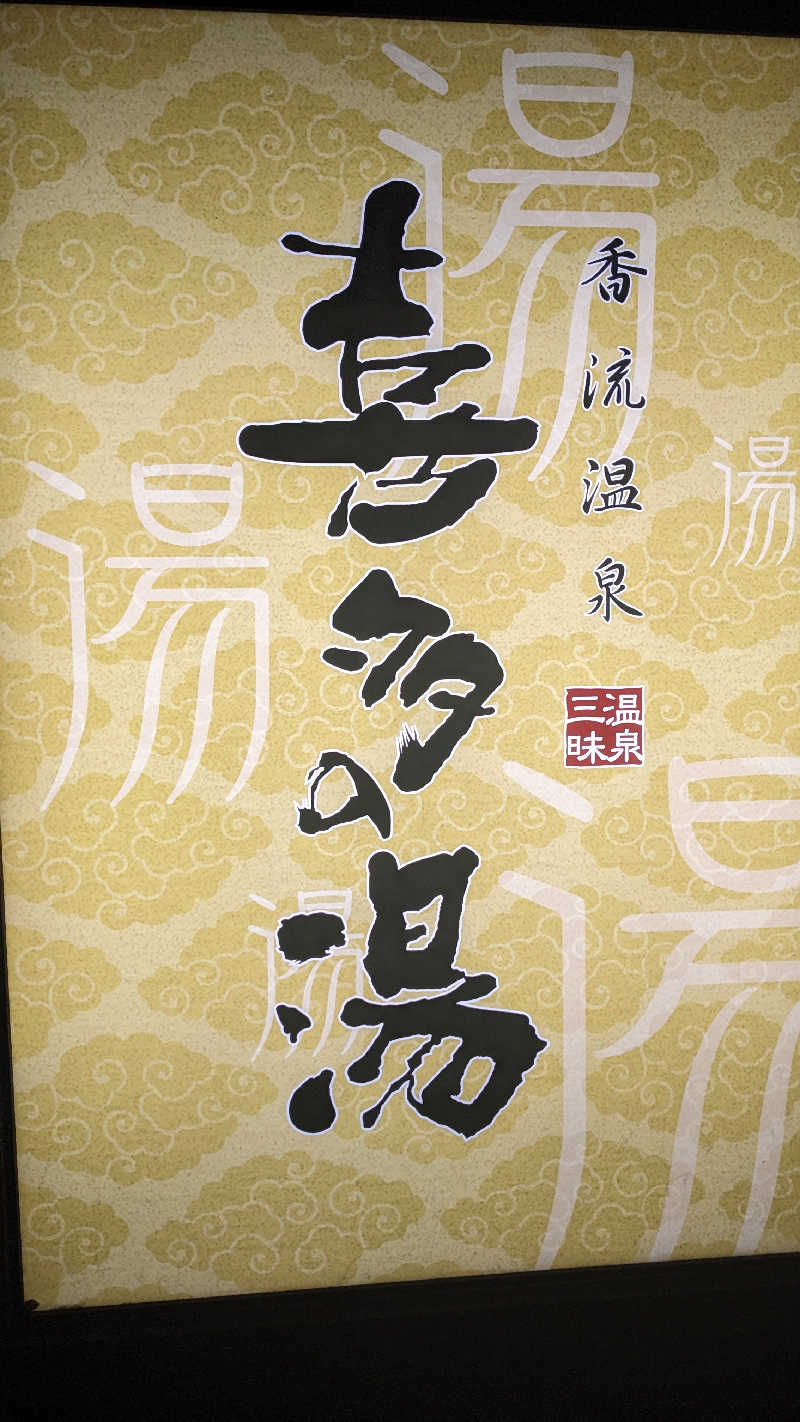 香流温泉
温泉三昧
喜多の湯
湯
湯
湯
湯
湯